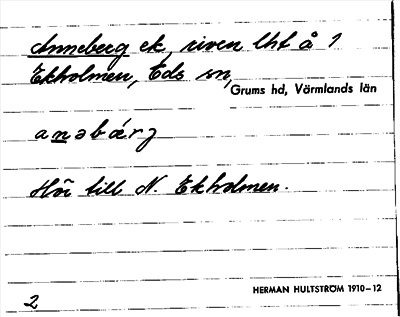 Anneberg ek, riven lht å 1
Ekholmen, Eds sn,
Grums hd, Värmlands län
anəbárj
Hör till N. Ekholmen.
HERMAN HULTSTRÖM 1910-12
2